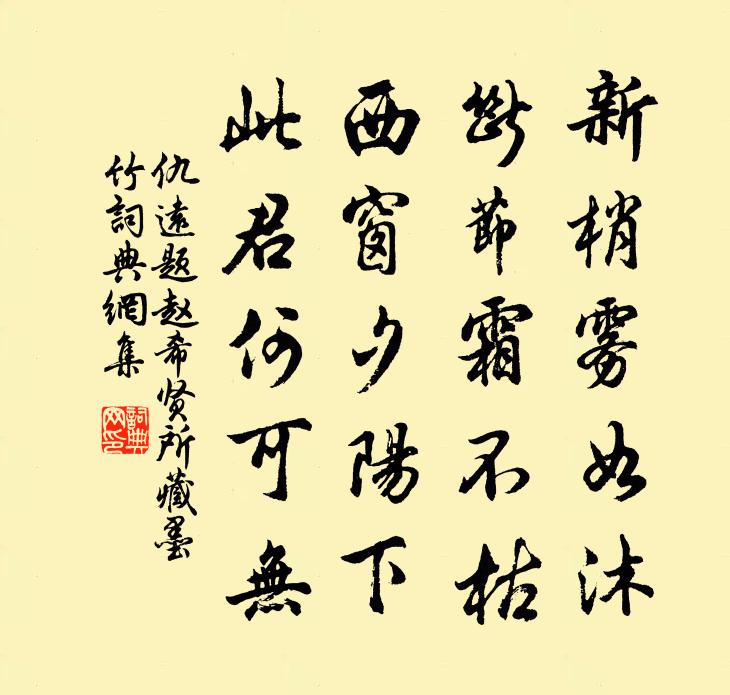 新梢雾如沐
断节霜不枯
西窗夕陽下
此君何可無
仇遠题赵希贤所藏墨
竹詞典網集
詞典
网印